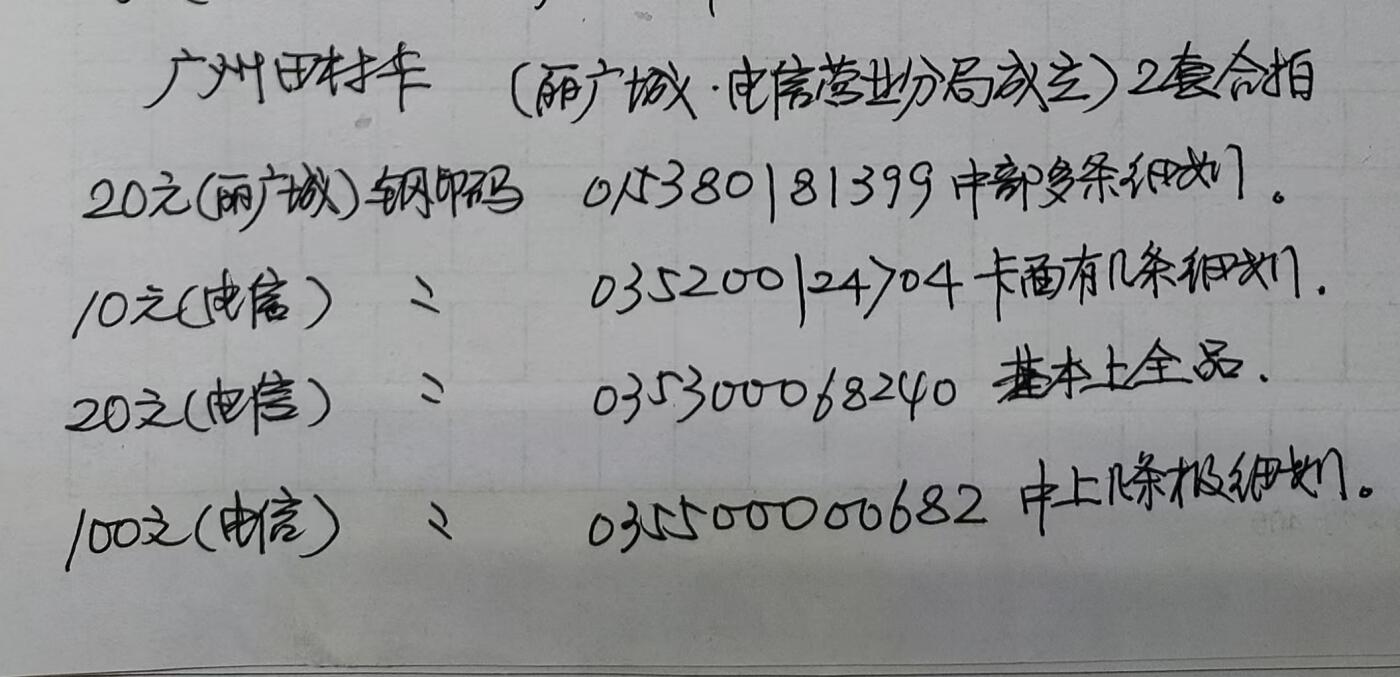 广州田村卡 (丽广城·电信营业分局成立)2套合拍
20元(丽广城)钢印码 015380181399 中部多条细划。
10元(电信) 〃 035200124704 卡面有几条细划.
20元(电信) 〃 035300068240 基本上全品.
100元(电信) 〃 035500000682 中上几条极细划。